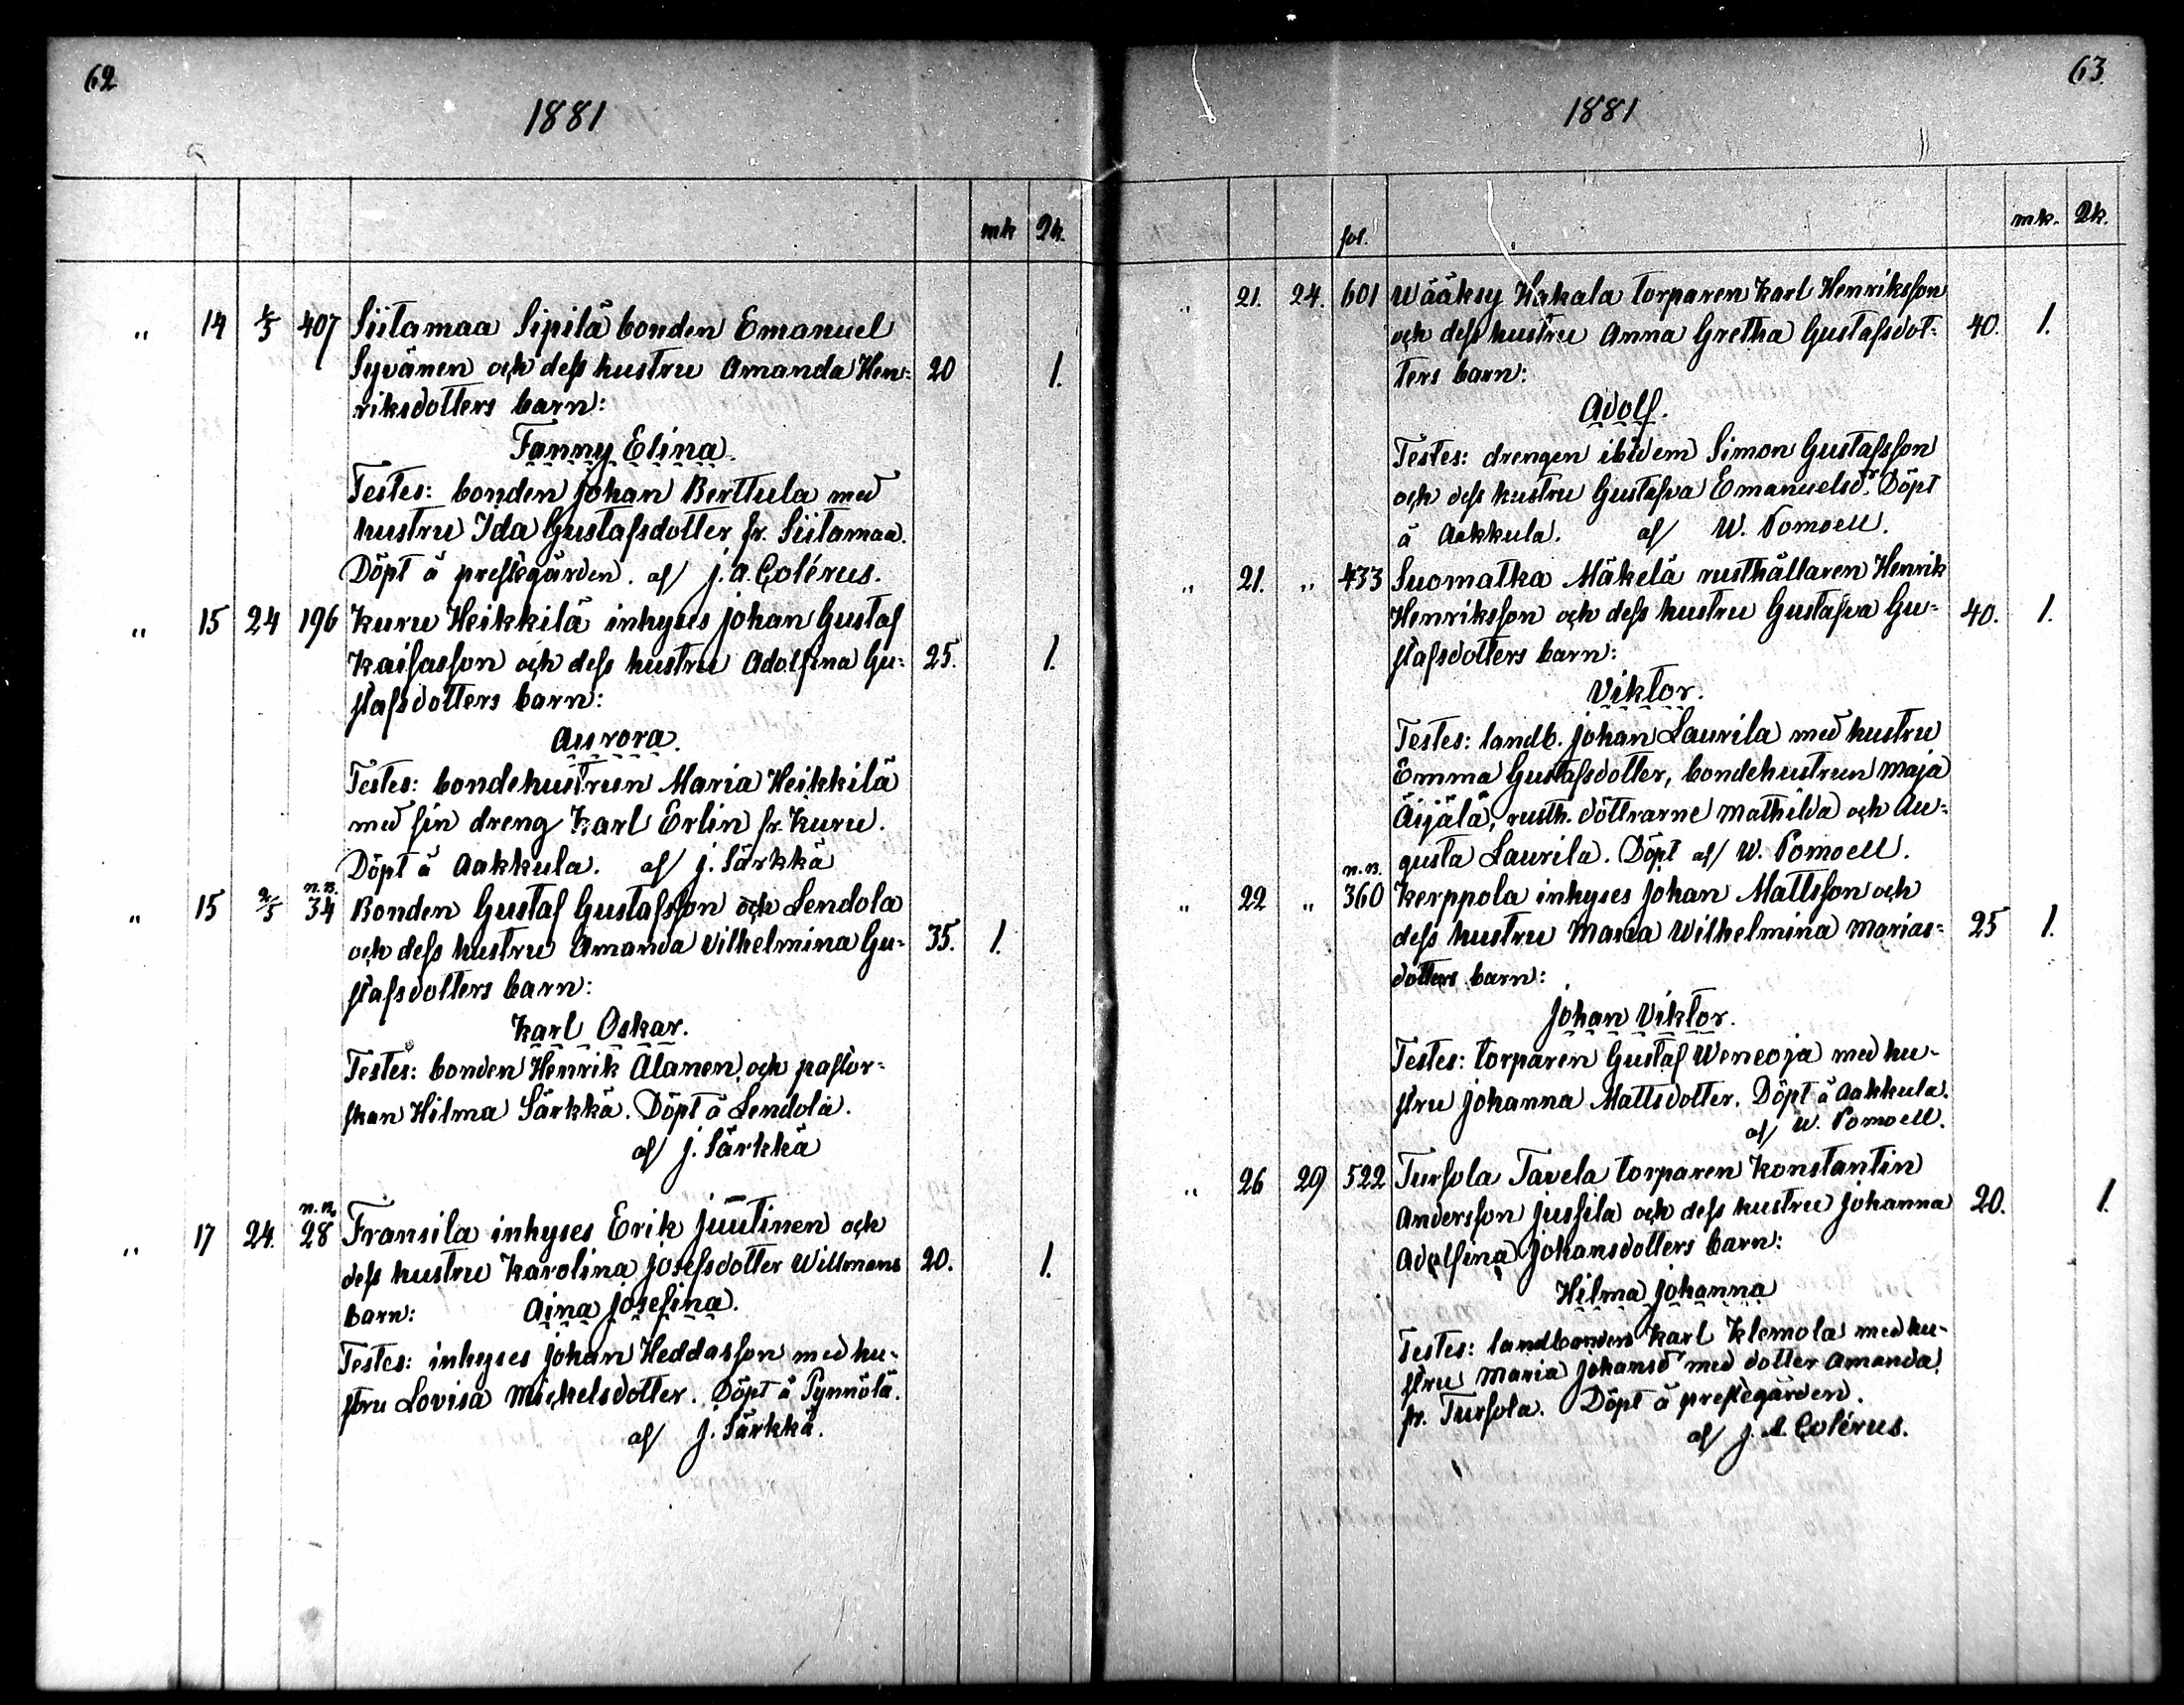 62
1881
mk 2k.
„ 14 2/5 407 Siitamaa Sipilä bonden Emanuel
Syvänen och dess hustru Amanda Hen- 20 1.
riksdotters barn:
Fanny Elina.
Testes: bonden Johan Berttula med
hustru Ida Gustafsdotter fr. Siitamaa.
Döpt å prestegården. af J. A. Colérus.
„ 15 24 196 Kuru Heikkilä inhyses Johan Gustaf
Kaisasson och dess hustru Adolfina Gu- 25. 1.
stafsdotters barn:
Aurora.
Testes: bondehustrun Maria Heikkilä
med sin dreng Karl Erlin fr. Kuru.
Döpt å Aakkula. af J. Särkkä
n.n.
„ 15 2/5 34 Bonden Gustaf Gustafsson och Lendola
och dess hustru Amanda Vilhelmina Gu- 35. 1.
stafsdotters barn:
Karl Oskar.
Testes: bonden Henrik Alanen och pastor-
skan Hilma Särkkä. Döpt å Lendola.
af J. Särkkä
n.n.
„ 17 24. 28 Fransila inhyses Erik Juutinen och
dess hustru Karolina Josefsdotter Willmans 20. 1.
barn: Aina Josefina.
Testes: inhyses Johan Heddasson med hu-
stru Lovisa Mickelsdotter. Döpt å Pynnölä.
af J. Särkkä.
63.
1881
fol. mk. 2k.
„ 21. 24. 601 Wääksy Hakala torparen Karl Henriksson
och dess hustru Anna Gretha Gustafsdot- 40. 1.
ters barn:
Adolf.
Testes: drengen ibidem Simon Gustafsson
och dess hustru Gustafva Emanuelsdr. Döpt
å Aakkula. af W. Pomoell.
„ 21. „ 433 Suomatka Mäkelä rusthållaren Henrik
Henriksson och dess hustru Gustafva Gu- 40. 1.
stafsdotters barn:
Viktor.
Testes: landb. Johan Laurila med hustru
Emma Gustafsdotter, bondehustrun Maja
Äijälä, rusth. döttrarne Mathilda och Au-
gusta Laurila. Döpt af W. Pomoell.
n.n.
„ 22 „ 360 Kerppola inhyses Johan Mattsson och
dess hustru Maria Wilhelmina Marias- 25 1.
dotters barn:
Johan Viktor.
Testes: torparen Gustaf Weneoja med hu-
stru Johanna Mattsdotter. Döpt å Aakkula.
af W. Pomoell.
„ 26 29 522 Tursola Tavela torparen Konstantin
Andersson Jussila och dess hustru Johanna 20. 1.
Adolfina Johansdotters barn:
Hilma Johanna
Testes: landbonden Karl Klemola med hu-
stru Maria Johansdr med dotter Amanda
fr. Tursola. Döpt å prestegården.
af J. A. Colérus.